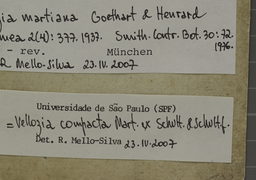 ia martiana Goethart & Henrard
mea 2(4): 377. 1937. Smith. Contr. Bot. 30: 72.
1976.
- rev. München
R. Mello-Silva 23.IV.2007
Universidade de São Paulo (SPF)
= Vellozia compacta Mart. ex Schult. & Schult.f.
Det. R. Mello-Silva 23.IV.2007